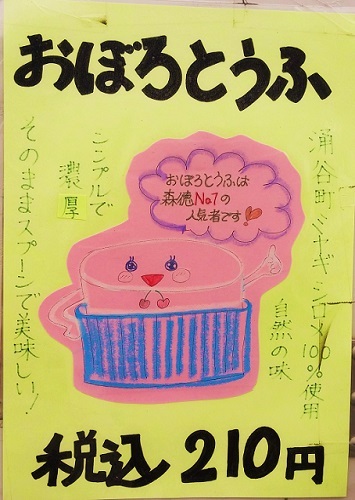 おぼろとうふ
涌谷町ミヤギシロメ100%使用
自然の味
おぼろとうふは
森徳No1の
人気者です!
シンプルで
濃厚
そのままスプーンで美味しい!
税込210円